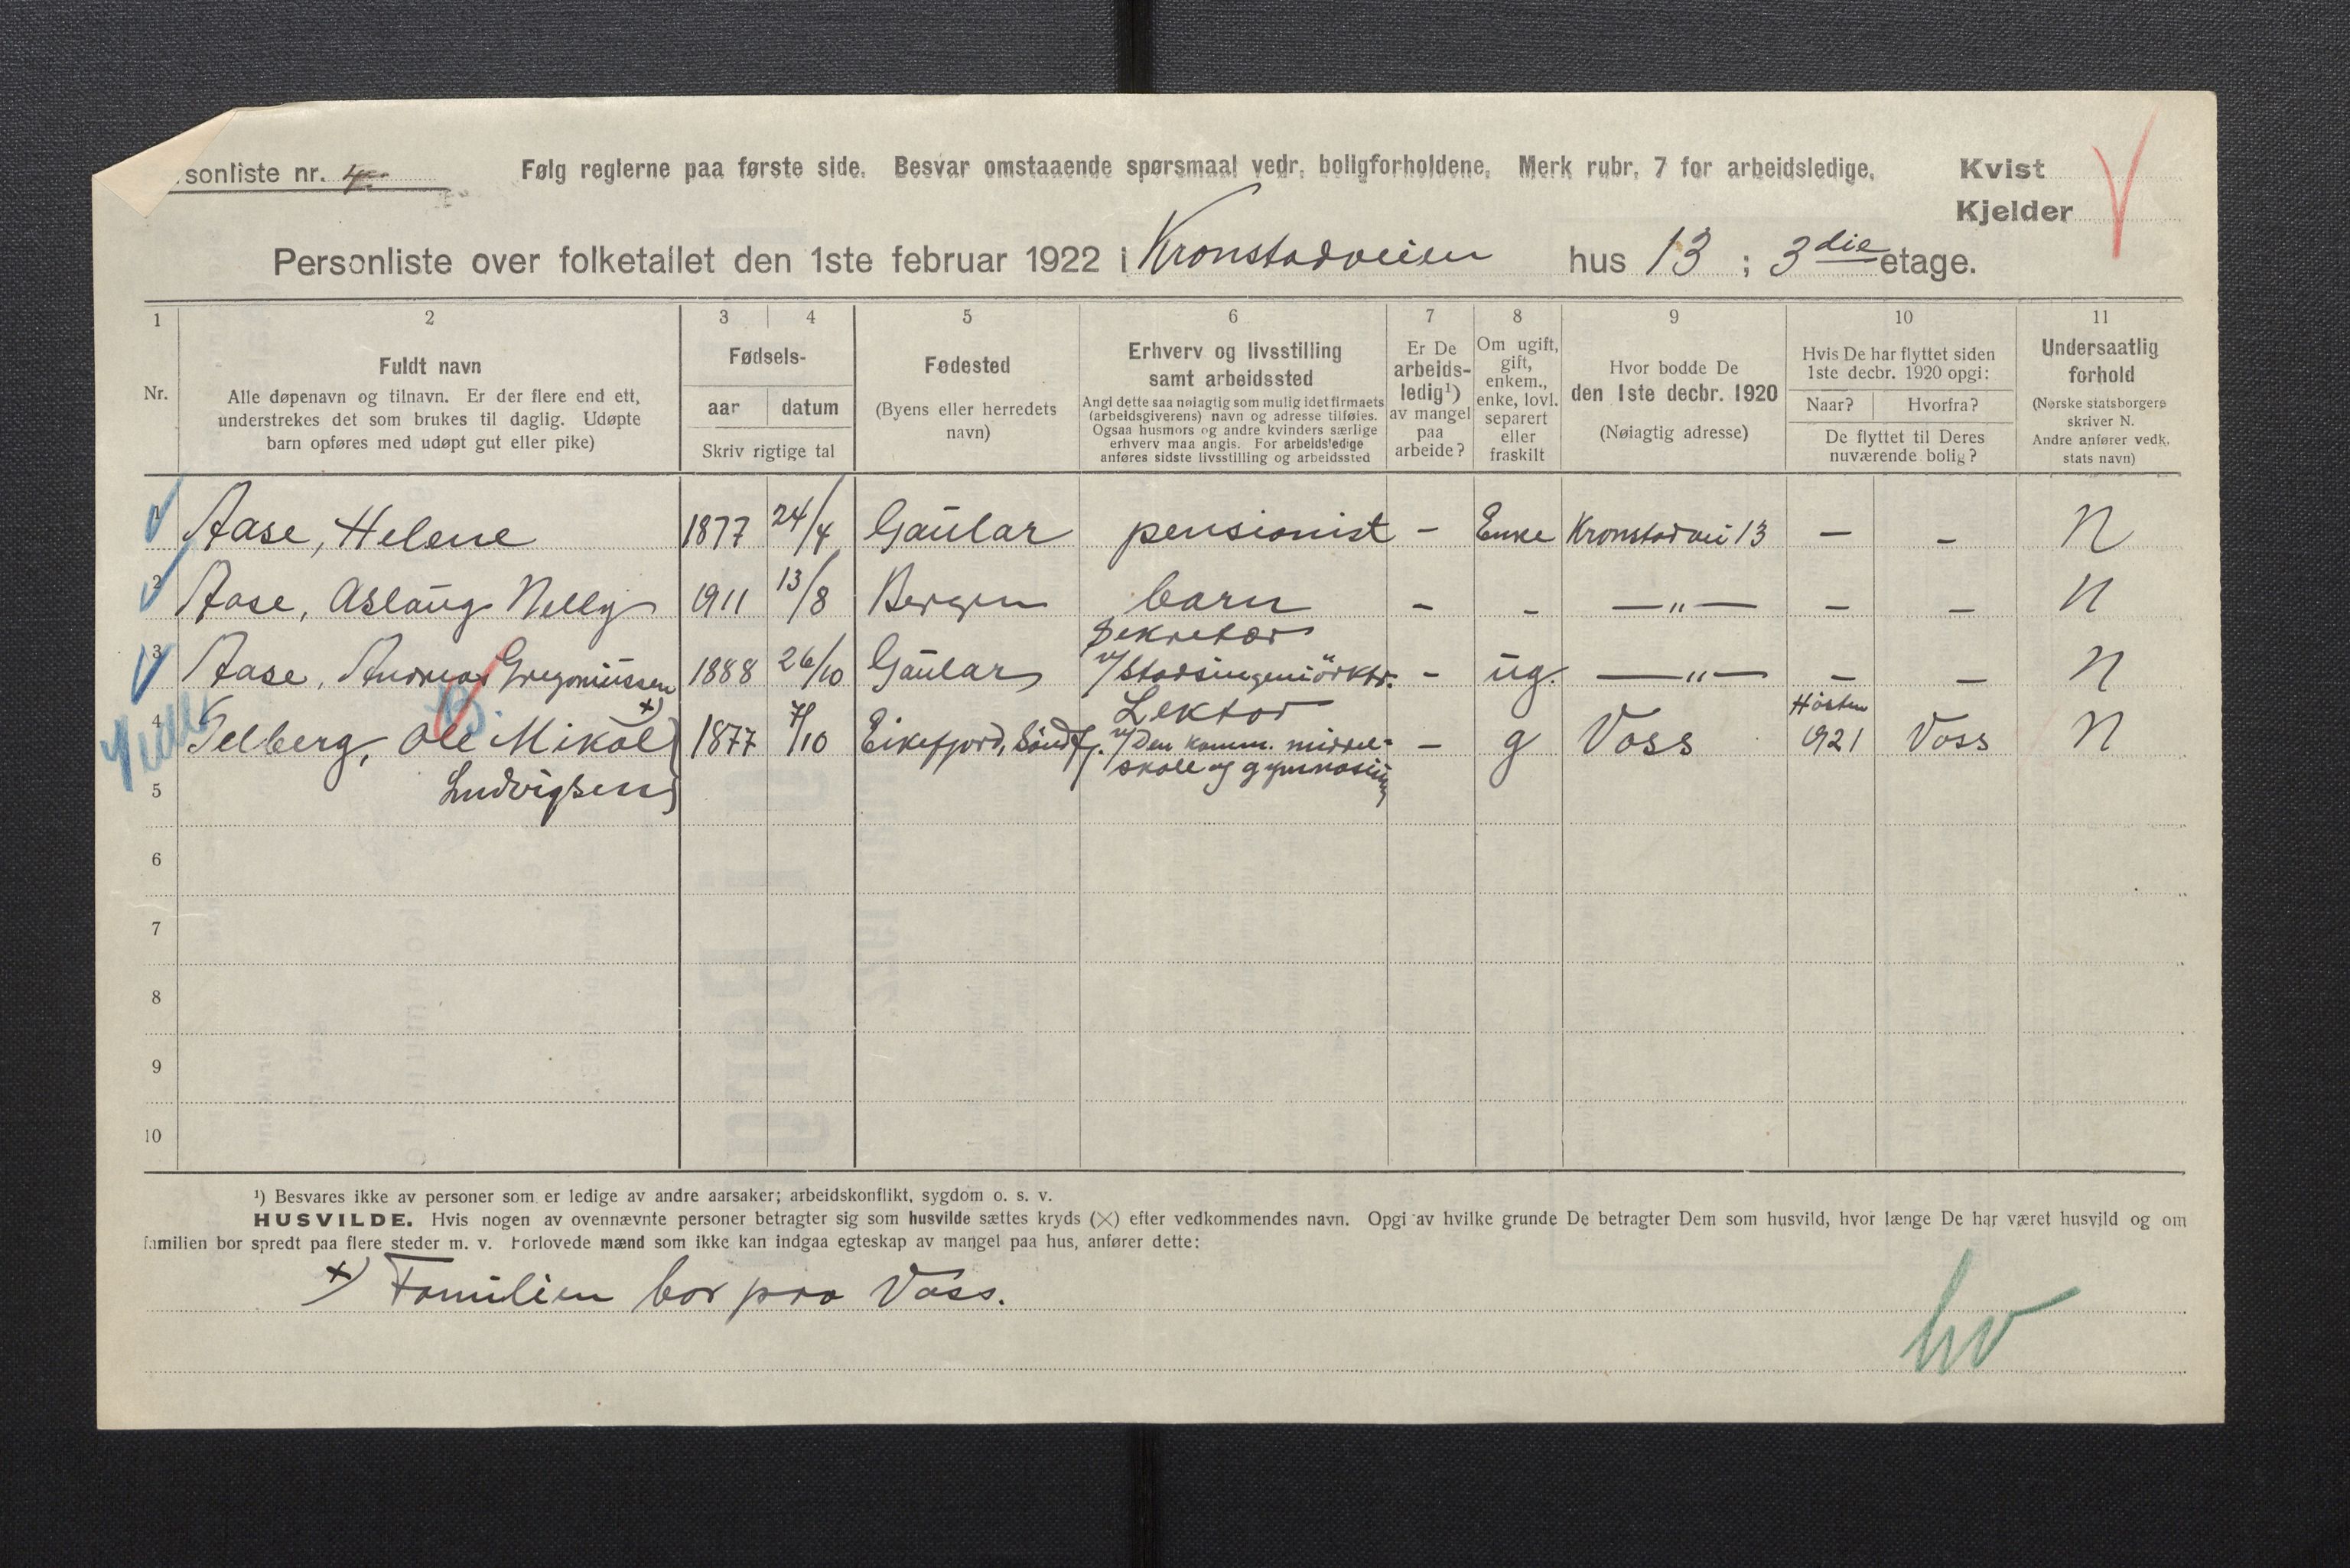 sonliste nr. 4. Følg reglerne paa første side. Besvar omstaaende spørsmaal vedr. boligforholdene. Merk rubr. 7 for arbeidsledige. Kvist
Kjelder
Personliste over folketallet den 1ste februar 1922 i Kronstadveien hus 13 ; 3die etage.
1 2 3 4 5 6 7 8 9 10 11
Nr.
Fuldt navn
Alle døpenavn og tilnavn. Er der flere end ett,
understrekes det som brukes til daglig. Udøpte
barn opføres med udøpt gut eller pike)
Fødsels-
aar datum
Skriv rigtige tal
Fødested
(Byens eller herredets
navn)
Erhverv og livsstilling
samt arbeidssted
Angi dette saa nøiagtig som mulig idet firmaets
(arbeidsgiverens) navn og adresse tilføies.
Ogsaa husmors og andre kvinders særlige
erhverv maa angis. For arbeidsledige
anføres sidste livsstilling og arbeidssted
Er De
arbeids-
ledig¹)
av mangel
paa
arbeide?
Om ugift,
gift,
enkem.,
enke, lovl.
separert
eller
fraskilt
Hvor bodde De
den 1ste decbr. 1920
(Nøiagtig adresse)
Hvis De har flyttet siden
1ste decbr. 1920 opgi:
Naar? Hvorfra?
De flyttet til Deres
nuværende bolig?
Undersaatlig
forhold
(Norske statsborgere
skriver N.
Andre anfører vedk.
stats navn)
1 Aase, Helene 1877 24/4 Gaular pensionist - Enke Kronstadvei 13 - - N
2 Aase, Aslaug Nelly 1911 13/8 Bergen barn - - —"— - - N
3 Aase, Andreas Gregoriussen 1888 26/10 Gaular Sekretær
v/Stadsingeniörktr. - ug. —"— - - N
4 Selberg, Ole Mikal x) 1877 7/10 Eikefjord, Söndfj. Lektor
v/Den komm. middel-
skole og gymnasium - g Voss Hösten
1921 Voss N
5 Ludvigsen
6
7
8
9
10
¹) Besvares ikke av personer som er ledige av andre aarsaker; arbeidskonflikt, sygdom o. s. v.
HUSVILDE. Hvis nogen av ovennævnte personer betragter sig som husvilde sættes kryds (×) efter vedkommendes navn. Opgi av hvilke grunde De betragter Dem som husvild, hvor længe De har været husvild og om
familien bor spredt paa flere steder m. v. Forlovede mænd som ikke kan indgaa egteskap av mangel paa hus, anfører dette:
x) Familien bor paa Voss.
hv